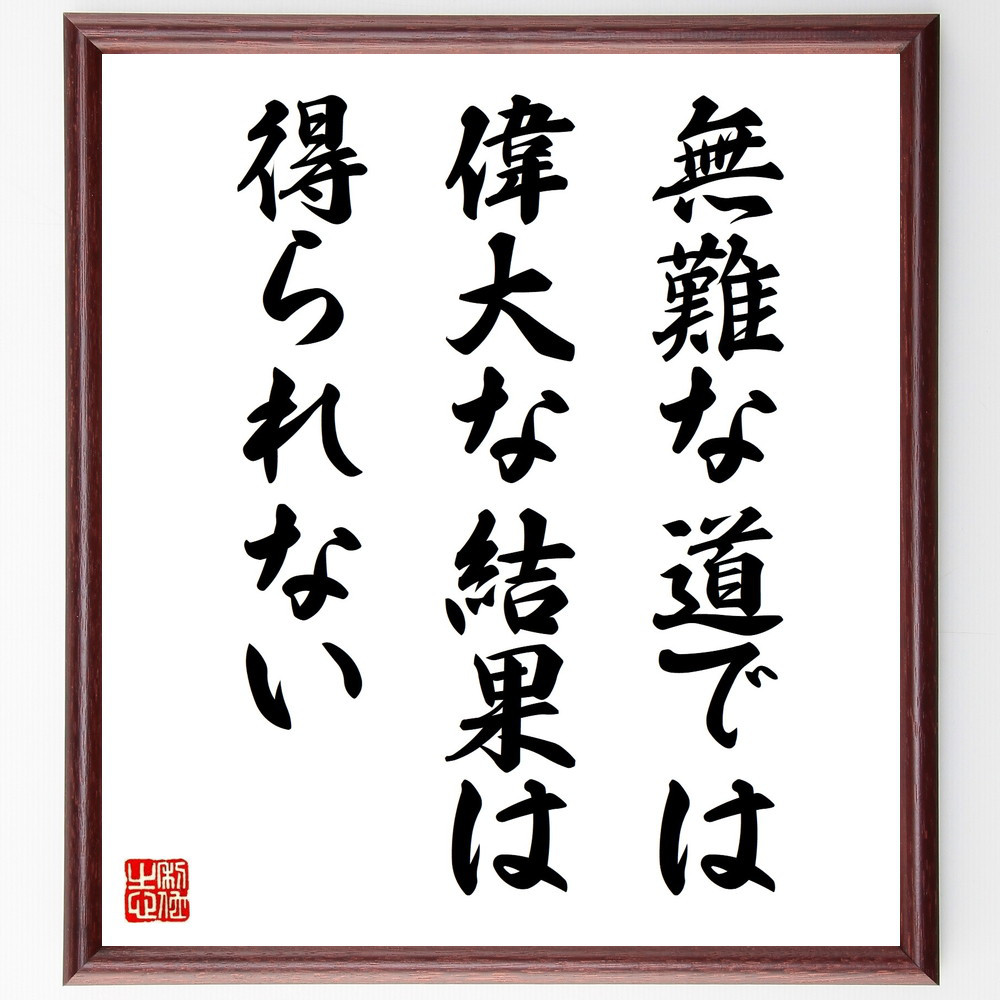 無難な道では
偉大な結果は
得られない